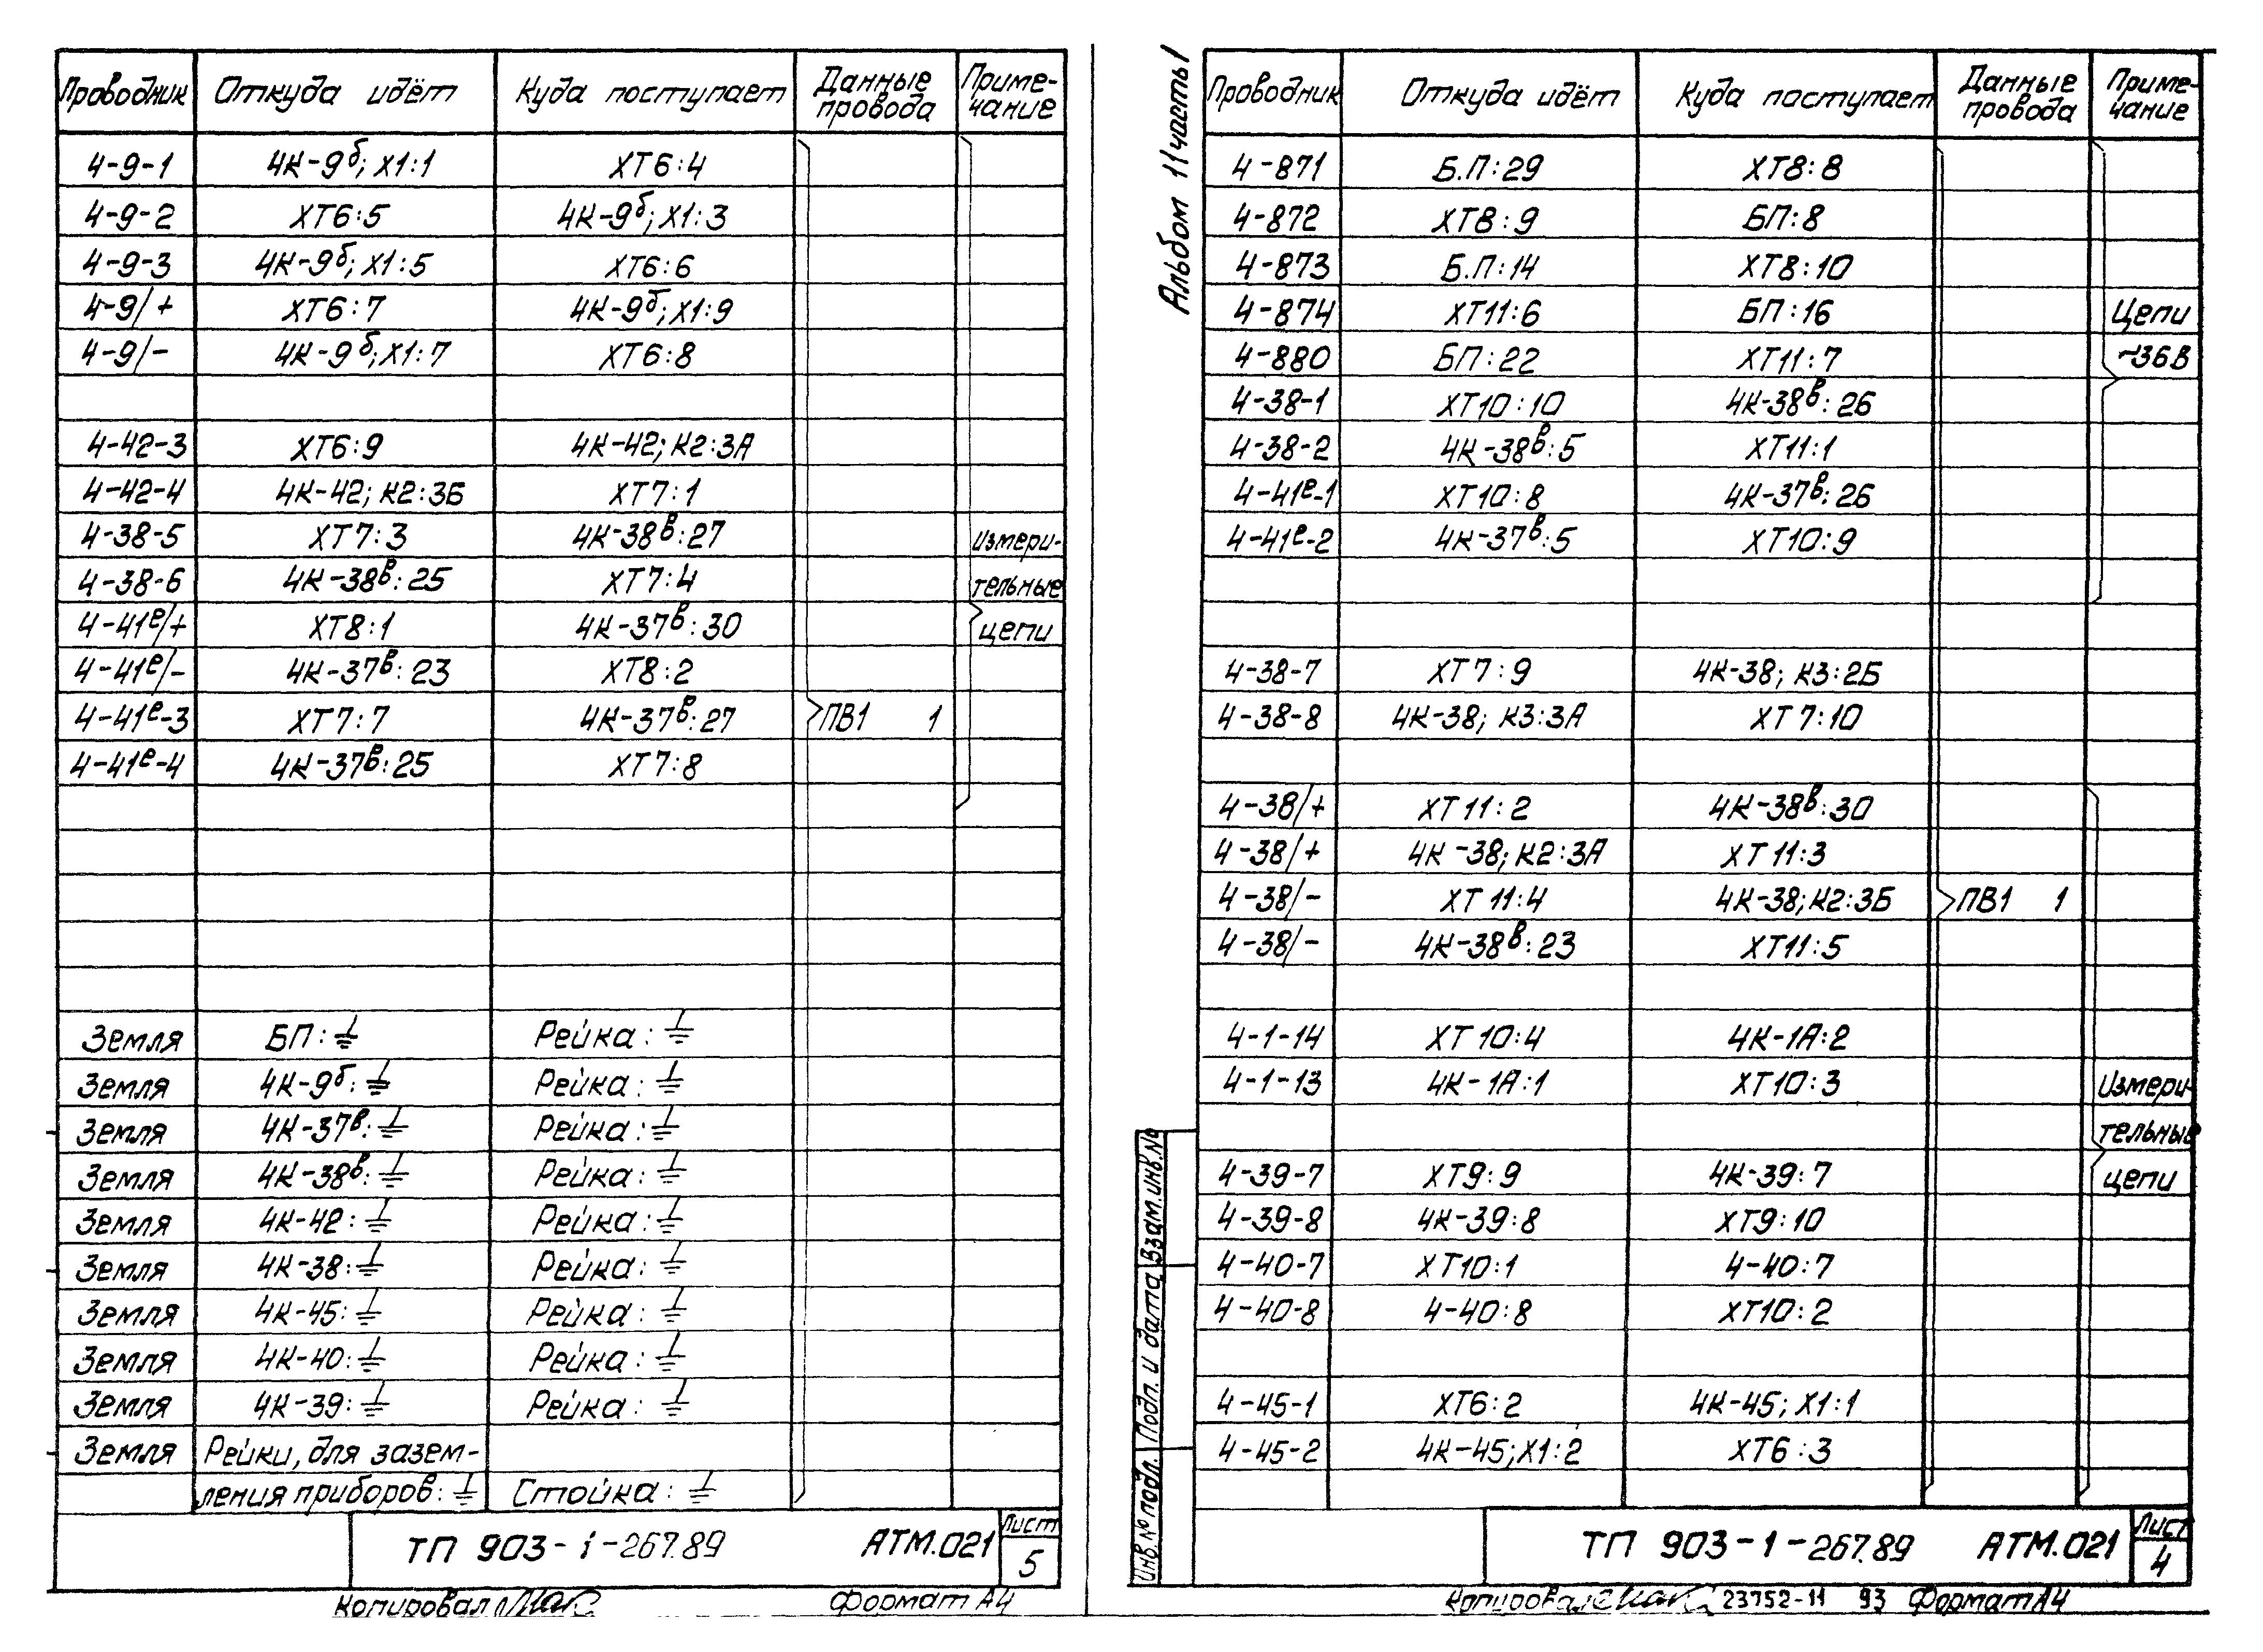 Проводник Откуда идёт Куда поступает Данные провода Приме-чание
4-9-1 4К-9б; Х1:1 ХТ6:4
4-9-2 ХТ6:5 4К-9б; Х1:3
4-9-3 4К-9б; Х1:5 ХТ6:6
4-9/+ ХТ6:7 4К-9б; Х1:9
4-9/- 4К-9б; Х1:7 ХТ6:8
4-42-3 ХТ6:9 4К-42; К2:3А
4-42-4 4К-42; К2:3Б ХТ7:1
4-38-5 ХТ7:3 4К-38в:27 Измери-
4-38-6 4К-38в:25 ХТ7:4 тельные
4-41е/+ ХТ8:1 4К-37в:30 цепи
4-41е/- 4К-37в:23 ХТ8:2
4-41е-3 ХТ7:7 4К-37в:27 ПВ1 1
4-41е-4 4К-37в:25 ХТ7:8
Земля БП:⏚ Рейка:⏚
Земля 4К-9б:⏚ Рейка:⏚
Земля 4К-37в:⏚ Рейка:⏚
Земля 4К-38в:⏚ Рейка:⏚
Земля 4К-42:⏚ Рейка:⏚
Земля 4К-38:⏚ Рейка:⏚
Земля 4К-45:⏚ Рейка:⏚
Земля 4К-40:⏚ Рейка:⏚
Земля 4К-39:⏚ Рейка:⏚
Земля Рейки, для зазем-
ления приборов:⏚ Стойка:⏚
ТП 903-1-267.89 АТМ.021 Лист 5
Копировал Формат А4
Альбом 11 часть 1
Проводник Откуда идёт Куда поступает Данные провода Приме-чание
4-871 Б.П:29 ХТ8:8
4-872 ХТ8:9 БП:8
4-873 Б.П:14 ХТ8:10
4-874 ХТ11:6 БП:16 Цепи
4-880 БП:22 ХТ11:7 ~36В
4-38-1 ХТ10:10 4К-38в:26
4-38-2 4К-38в:5 ХТ11:1
4-41е-1 ХТ10:8 4К-37в:26
4-41е-2 4К-37в:5 ХТ10:9
4-38-7 ХТ7:9 4К-38; К3:2Б
4-38-8 4К-38; К3:3А ХТ7:10
4-38/+ ХТ11:2 4К-38в:30
4-38/+ 4К-38; К2:3А ХТ11:3
4-38/- ХТ11:4 4К-38; К2:3Б ПВ1 1
4-38/- 4К-38в:23 ХТ11:5
4-1-14 ХТ10:4 4К-1А:2
4-1-13 4К-1А:1 ХТ10:3 Измери-
тельные
4-39-7 ХТ9:9 4К-39:7 цепи
4-39-8 4К-39:8 ХТ9:10
4-40-7 ХТ10:1 4-40:7
4-40-8 4-40:8 ХТ10:2
4-45-1 ХТ6:2 4К-45; Х1:1
4-45-2 4К-45; Х1:2 ХТ6:3
Инв.№ подл. Подп. и дата Взам.инв.№
ТП 903-1-267.89 АТМ.021 Лист 4
Копировал 23752-11 93 Формат А4